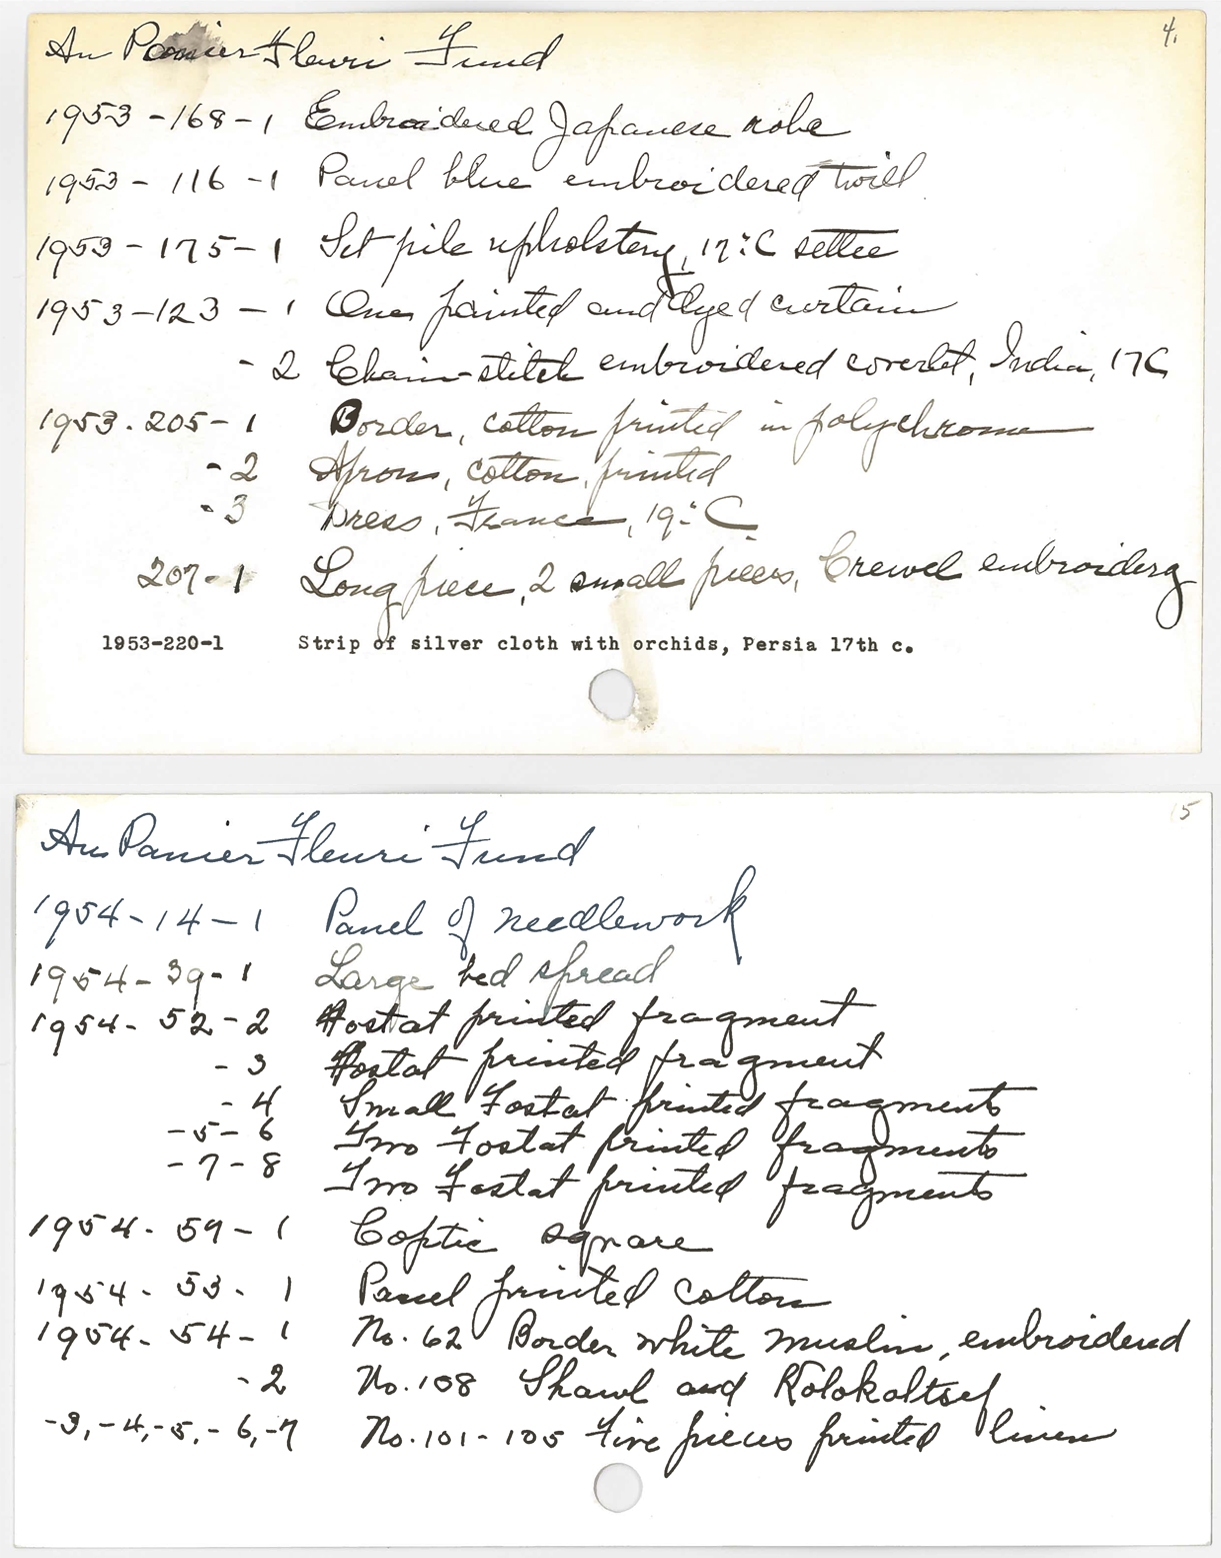 4.
Au Panier Fleuri Fund
1953-168-1 Embroidered Japanese robe
1953-116-1 Panel blue embroidered twill
1953-175-1 Set pile upholstery, 17" C settee
1953-123-1 One painted and dyed curtain
-2 Chain-stitch embroidered coverlet, India, 17C
1953.205-1 Border, cotton printed in polychrome
-2 Apron, cotton, printed
-3 Dress, France, 19" C.
207-1 Long piece, 2 small pieces, Crewel embroidery
1953-220-1 Strip of silver cloth with orchids, Persia 17th c.
5
Au Panier Fleuri Fund
1954-14-1 Panel of needlework
1954-39-1 Large bed spread
1954-52-2 Fostat printed fragment
-3 Fostat printed fragment
-4 Small Fostat printed fragments
-5-6 Two Fostat printed fragments
-7-8 Two Fostat printed fragments
1954-59-1 Coptic square
1954-53-1 Panel printed cotton
1954-54-1 No. 62 Border white muslin, embroidered
-2 No. 108 Shawl and Kolokaltsef
-3,-4,-5,-6,-7 No. 101-105 Five pieces printed linen